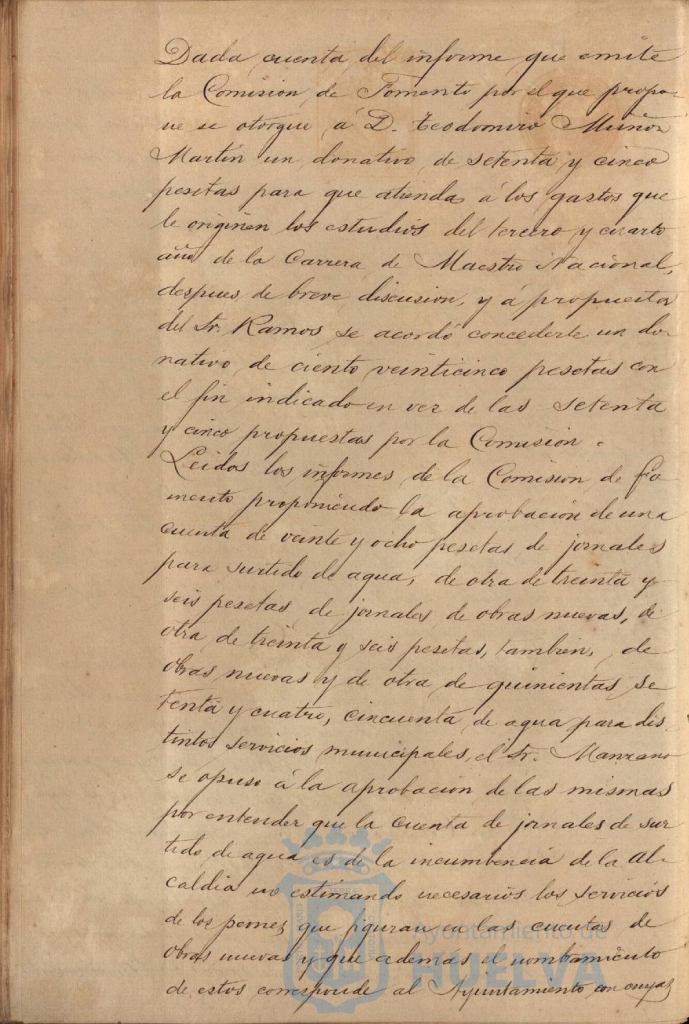 Dada cuenta del informe que emite
la Comision de Fomento por el que propo-
ne se otorgue á D. Teodomiro Muñoz
Martín un donativo de setenta y cinco
pesetas para que atienda á los gastos que
le originen los estudios del tercero y cuarto
año de la Carrera de Maestro Nacional,
despues de breve discusion, y á propuesta
del Sr. Ramos se acordó concederle un do-
nativo de ciento veinticinco pesetas con
el fin indicado en vez de las setenta
y cinco propuestas por la Comision.
Leidos los informes de la Comision de Fo-
mento proponiendo la aprobación de una
cuenta de veinte y ocho pesetas de jornales
para surtido de agua, de otra de treinta y
seis pesetas de jornales de obras nuevas, de
otra de treinta y seis pesetas, tambien, de
obras nuevas y de otra de quinientas se-
tenta y cuatro, cincuenta de agua para dis-
tintos servicios municipales, el Sr. Manzano
se opuso á la aprobacion de las mismas
por entender que la cuenta de jornales de sur-
tido de agua es de la incumbencia de la Al-
caldia no estimando necesarios los servicios
de los peones que figuran en las cuentas de
obras nuevas y que ademas el nombamiento
de estos corresponde al Ayuntamiento con cuyas
Ayuntamiento de
HUELVA